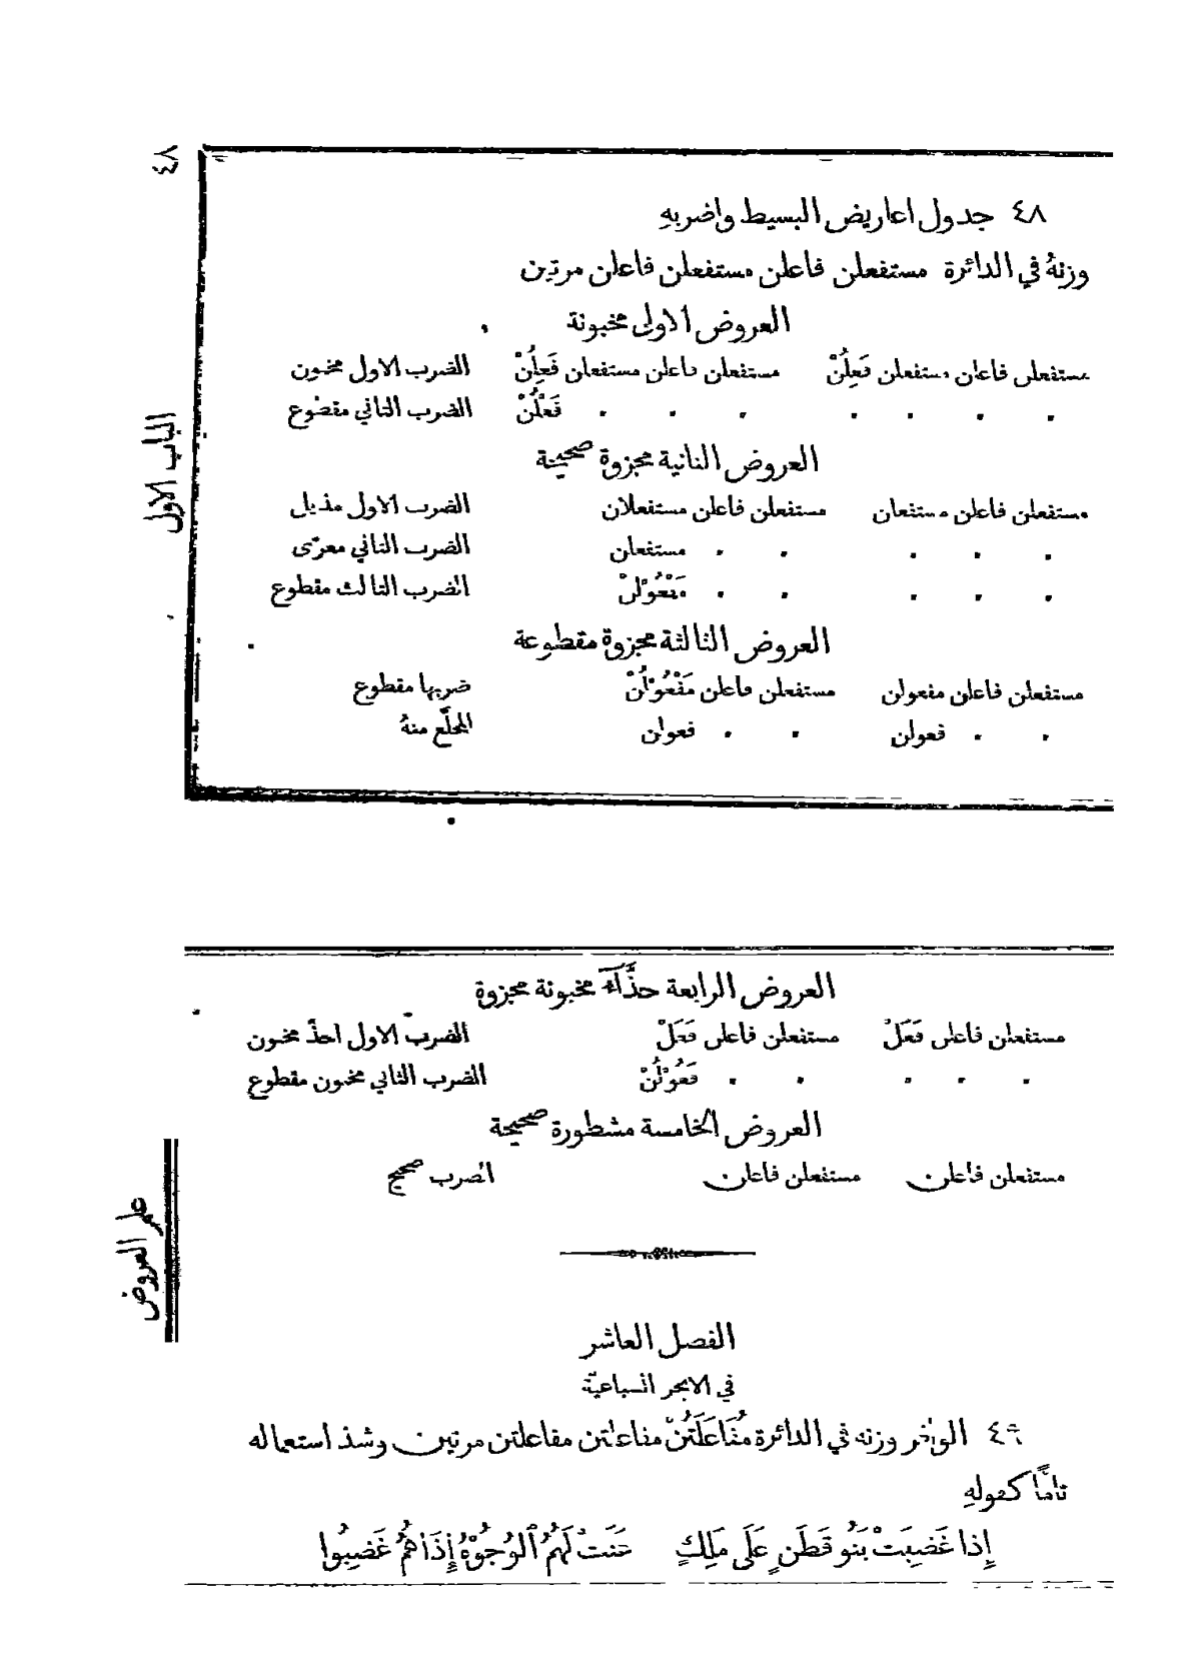 ٤٨
الباب الاول
٤٨ جدول اعاريض البسيط واضربهِ
وزنهُ في الدائرة مستفعلن فاعلن مستفعلن فاعلن مرتين
العروض الاولى مخبونة
مستفعلن فاعلن مستفعلن فَعِلُنْ مستفعلن فاعلن مستفعلن فَعِلُنْ الضرب الاول مخبون
. . . . . . . فَعْلُنْ الضرب الثاني مقطوع
العروض الثانية مجزوة صحيحة
مستفعلن فاعلن مستفعلن مستفعلن فاعلن مستفعلان الضرب الاول مذيل
. . . . . مستفعلن الضرب الثاني معرّى
. . . . . مَفْعُوْلُنْ الضرب الثالث مقطوع
العروض الثالثة مجزوة مقطوعة
مستفعلن فاعلن مفعولن مستفعلن فاعلن مَفْعُوْلُنْ ضربها مقطوع
. . فعولن . . فعولن المخلّع منهُ
علم العروض
العروض الرابعة حذَّآء مخبونة مجزوة
مستفعلن فاعلن فَعَلْ مستفعلن فاعلن فَعَلْ الضرب الاول احذّ مخبون
. . . . . فَعُوْلُنْ الضرب الثاني مخبون مقطوع
العروض الخامسة مشطورة صحيحة
مستفعلن فاعلن مستفعلن فاعلن الضرب صحيح
الفصل العاشر
في الابحر السباعيّة
٤٩ الوافر وزنه في الدائرة مُفَاعَلَتُنْ مفاعلتن مفاعلتن مرتين وشذ استعماله
تامًّا كقولهِ
إِذا غَضِبَتْ بَنُو قَطَنٍ عَلَى مَلِكٍ عَنَتْ لَهُمُ ٱلْوُجُوْهُ إِذَا هُمُ غَضِبُوا